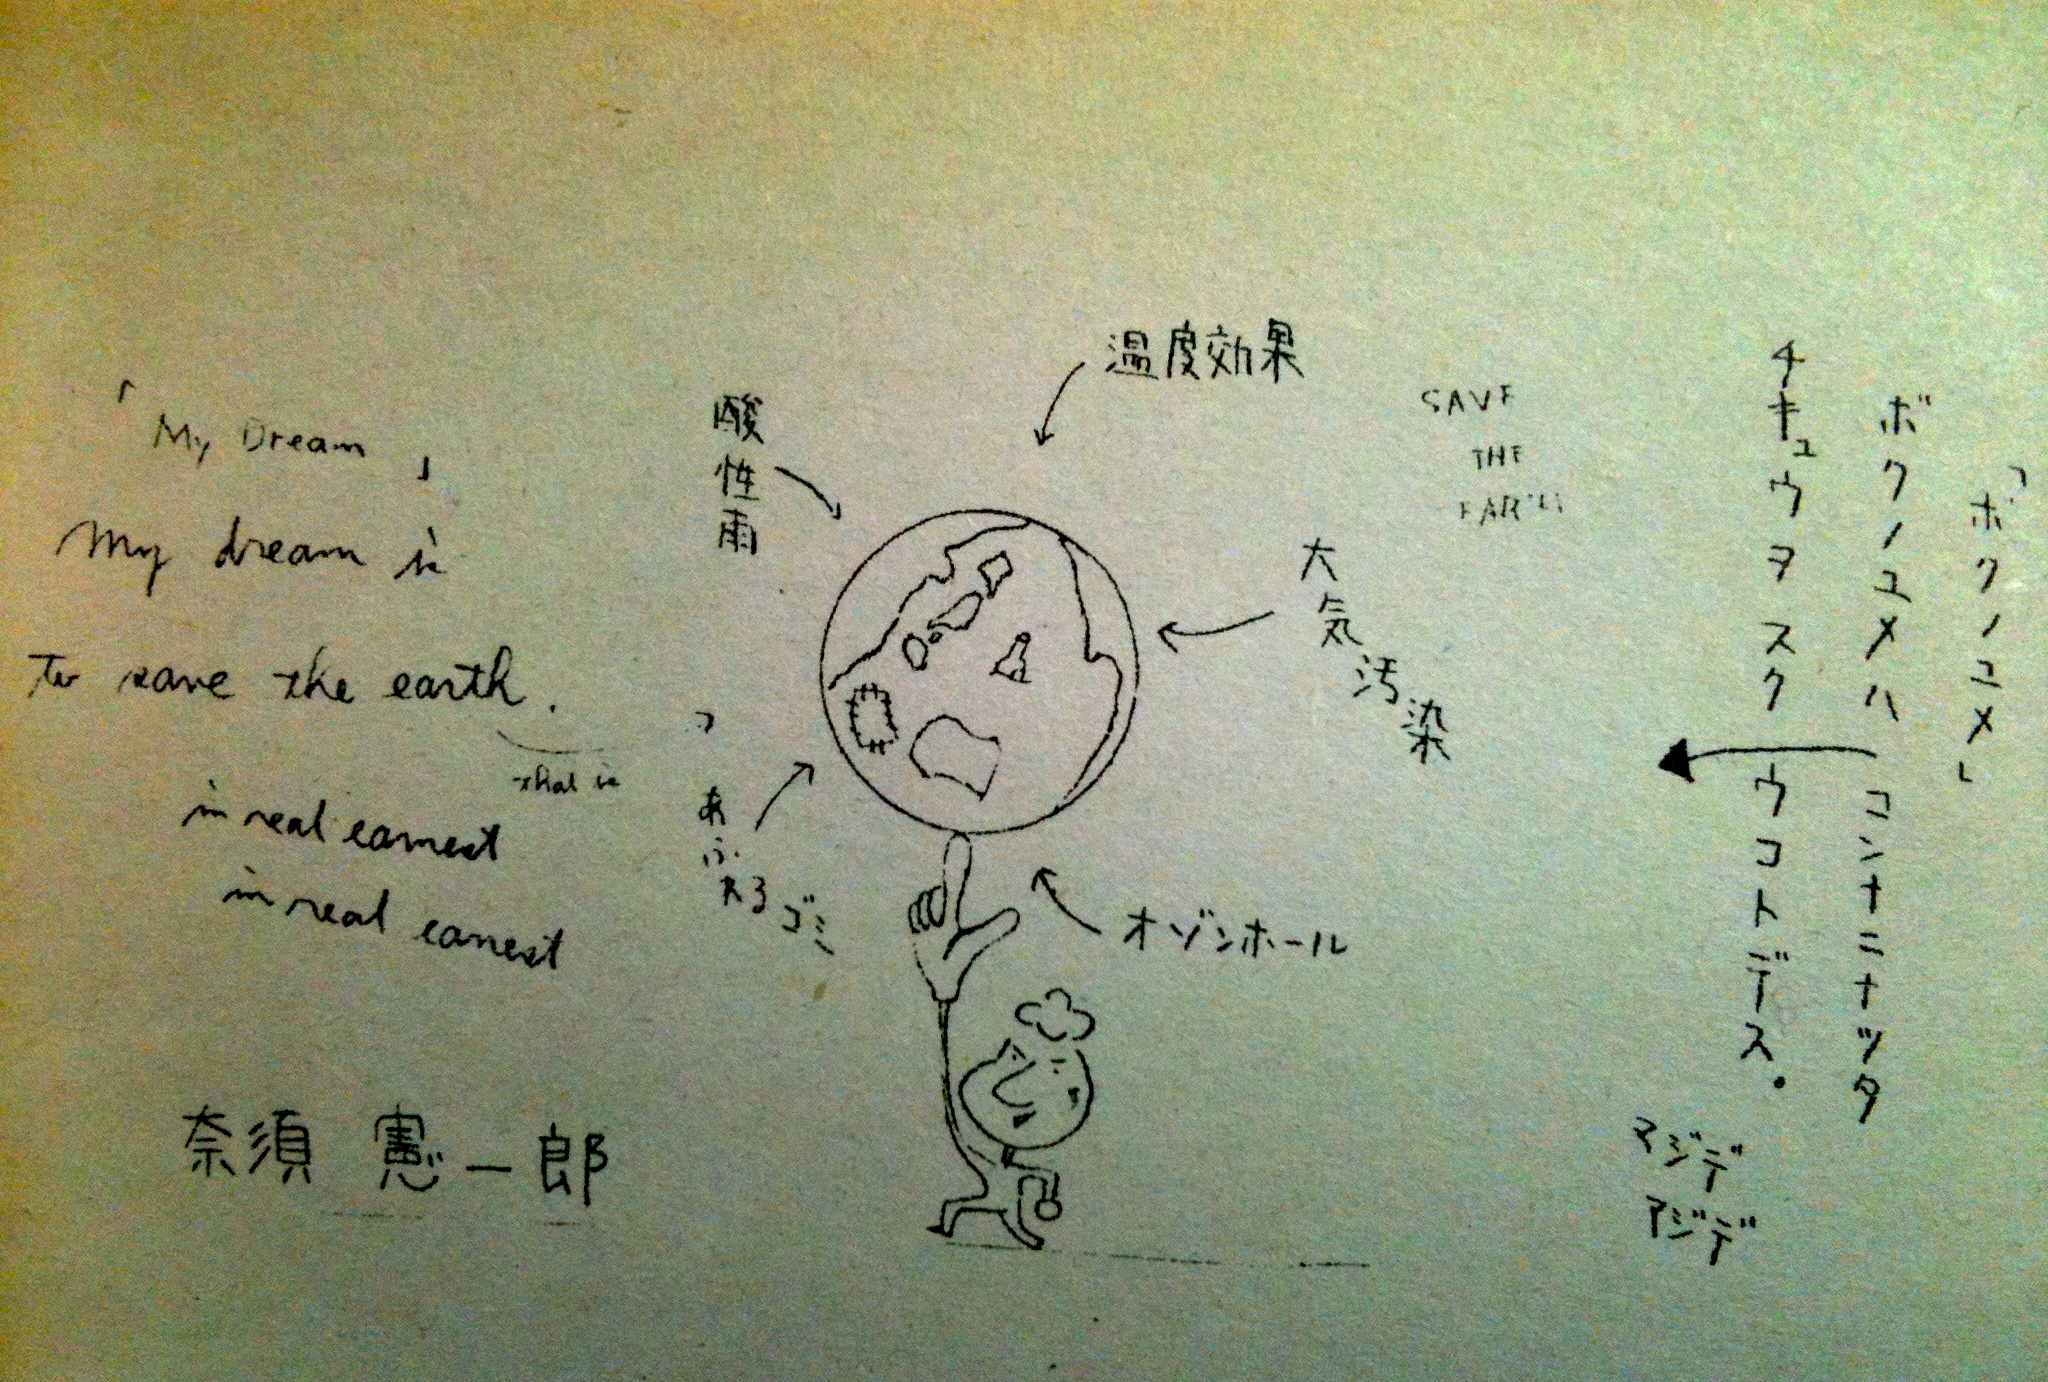 「My Dream」
My dream is
to save the earth.
that is
in real earnest
in real earnest
奈須 憲一郎
酸性雨
温度効果
大気汚染
オゾンホール
あふれるゴミ
SAVE
THE
「ボクノユメ」
ボクノユメハ
コンナニナッタ
チキュウヲスクウコトデス。
マジデ
マジデ